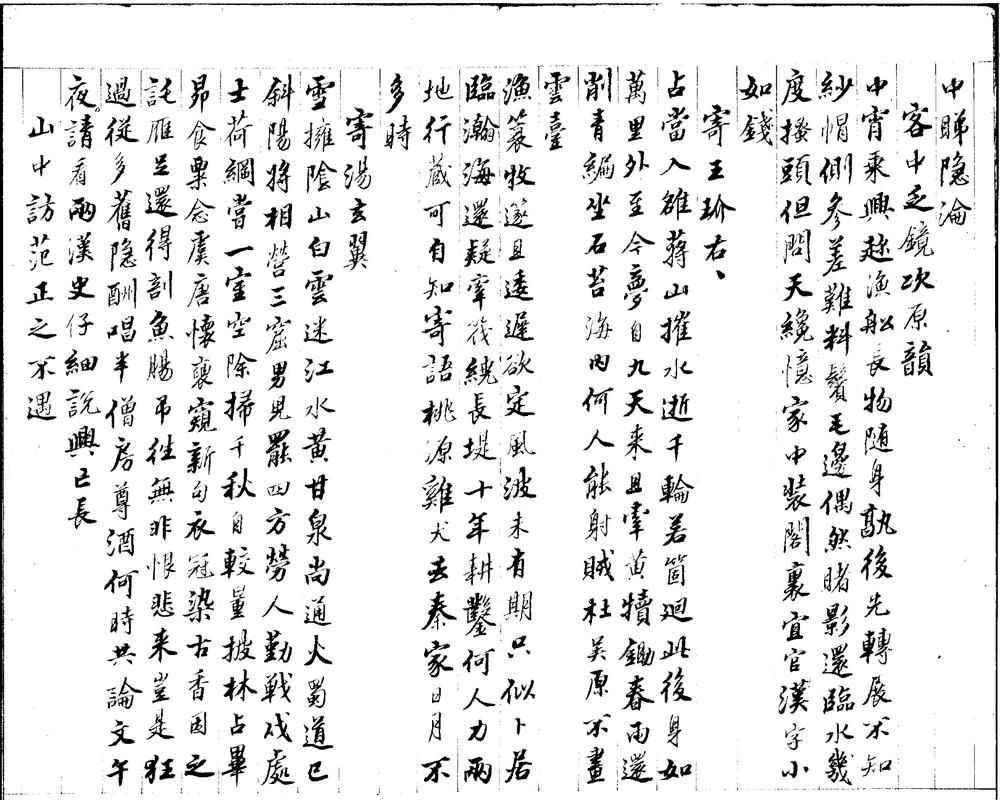 中睇隐淪
客中乏鏡次原韻
中宵乘興趂漁舩長物随身孰後先轉展不知
紗帽側參差難料鬢毛邊偶然睹影還臨水幾
度搔頭但問天纔憶家中裝閣裏宜官漢字小
如錢
寄王玠右
占當入雒蔣山摧水逝千輪若箇廻此後身如
萬里外至今夢自九天来且牽黄犢鋤春雨還
削青編坐石苔海内何人能射賊杜吴原不畫
雲臺
漁簑牧邃且逶遲欲定風波未有期只似卜居
臨瀚海還疑宰筏繞長堤十年耕鑿何人力兩
地行蔵可自知寄語桃源雞犬去秦家日月不
多時
寄湯玄翼
雪擁陰山白雲迷江水黄甘泉尚通火蜀道已
斜陽将相營三窟男児罷四方勞人勤戦伐處
士荷綱嘗一室空除掃千秋自較量披林占畢
昴食粟念虞唐懷褱窺新句衣冠染古香因之
託雁足還得剖魚腸吊往無非恨悲来豈是狂
過從多舊隐酬唱半僧房尊酒何時共論文午
夜請看兩漢史仔細説興亡長
山中訪范正之不遇